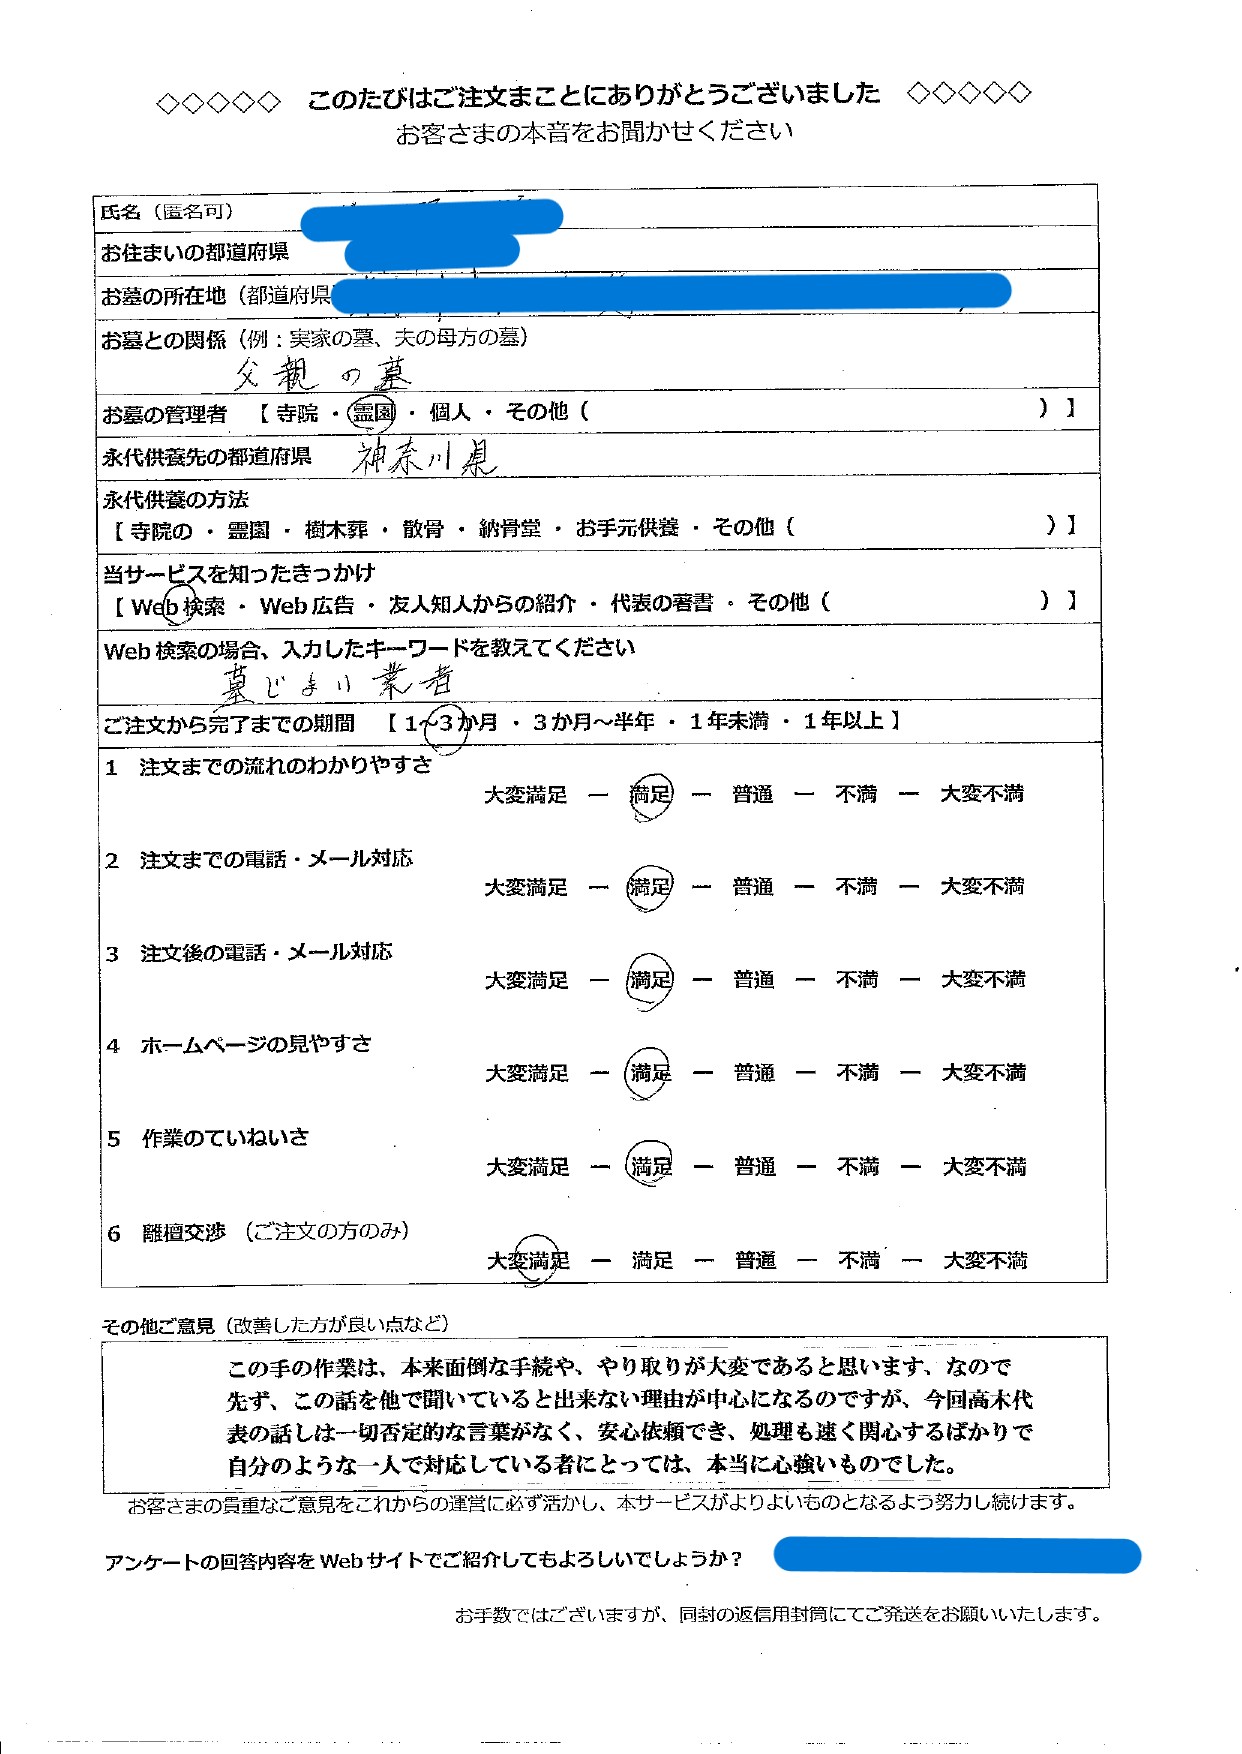 ◇◇◇◇◇ このたびはご注文まことにありがとうございました ◇◇◇◇◇
お客さまの本音をお聞かせください
氏名（匿名可）
お住まいの都道府県
お墓の所在地（都道府県
お墓との関係（例：実家の墓、夫の母方の墓）
父親の墓
お墓の管理者 【 寺院 ・ 霊園 ・ 個人 ・ その他（ ）】
永代供養先の都道府県 神奈川県
永代供養の方法
【 寺院の ・ 霊園 ・ 樹木葬 ・ 散骨 ・ 納骨堂 ・ お手元供養 ・ その他（ ）】
当サービスを知ったきっかけ
【 Web検索 ・ Web広告 ・ 友人知人からの紹介 ・ 代表の著書 ・ その他（ ）】
Web検索の場合、入力したキーワードを教えてください
墓じまい業者
ご注文から完了までの期間 【 1～3か月 ・ 3か月～半年 ・ 1年未満 ・ 1年以上 】
1 注文までの流れのわかりやすさ
大変満足 ー 満足 ー 普通 ー 不満 ー 大変不満
2 注文までの電話・メール対応
大変満足 ー 満足 ー 普通 ー 不満 ー 大変不満
3 注文後の電話・メール対応
大変満足 ー 満足 ー 普通 ー 不満 ー 大変不満
4 ホームページの見やすさ
大変満足 ー 満足 ー 普通 ー 不満 ー 大変不満
5 作業のていねいさ
大変満足 ー 満足 ー 普通 ー 不満 ー 大変不満
6 離檀交渉 （ご注文の方のみ）
大変満足 ー 満足 ー 普通 ー 不満 ー 大変不満
その他ご意見（改善した方が良い点など）
この手の作業は、本来面倒な手続や、やり取りが大変であると思います、なので
先ず、この話を他で聞いていると出来ない理由が中心になるのですが、今回高木代
表の話しは一切否定的な言葉がなく、安心依頼でき、処理も速く関心するばかりで
自分のような一人で対応している者にとっては、本当に心強いものでした。
お客さまの貴重なご意見をこれからの運営に必ず活かし、本サービスがよりよいものとなるよう努力し続けます。
アンケートの回答内容をWebサイトでご紹介してもよろしいでしょうか？
お手数ではございますが、同封の返信用封筒にてご発送をお願いいたします。